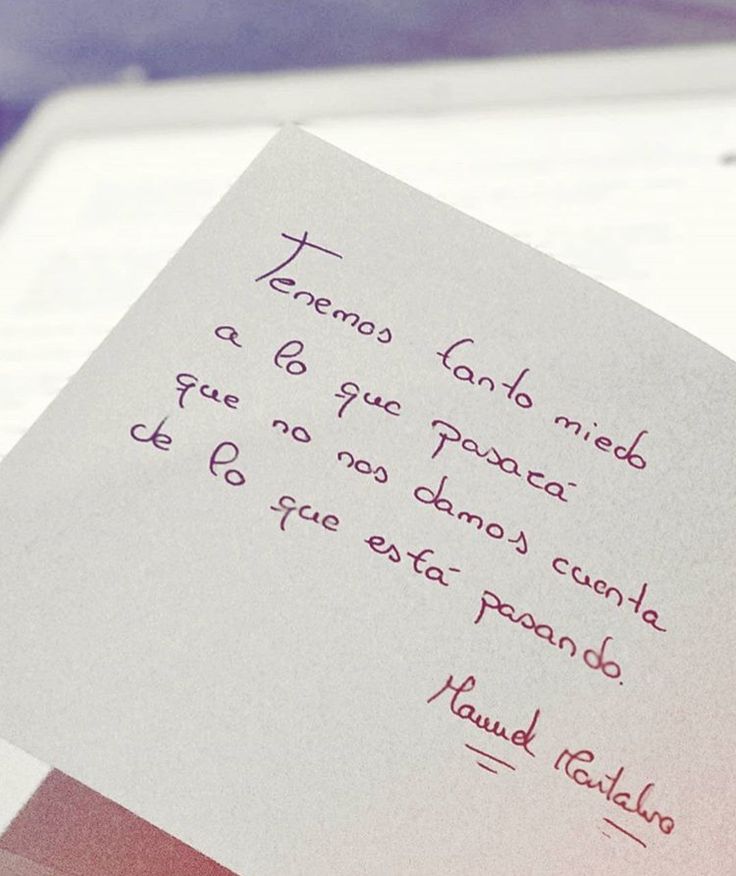 Tenemos tanto miedo
a lo que pasará
que no nos damos cuenta
de lo que está pasando.
Manuel Montalvo